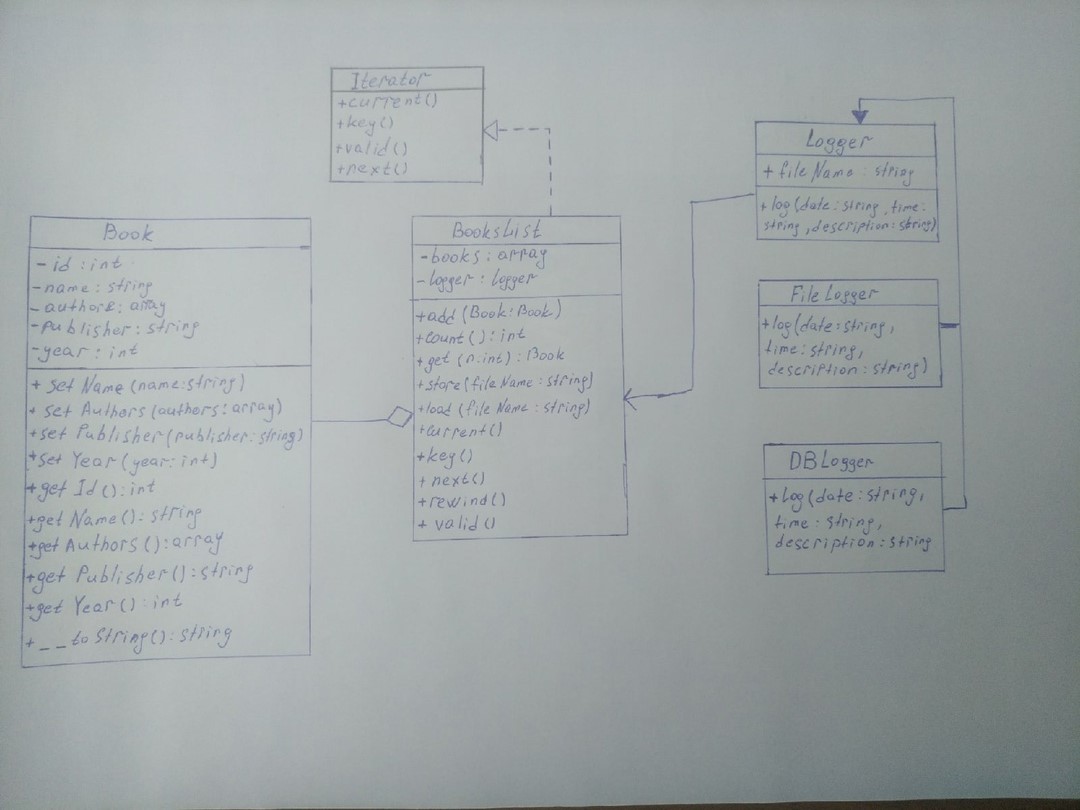 Iterator
+current()
+key()
+valid()
+next()
Book
- id : int
- name : string
- authors : array
- Publisher : string
- year : int
+ set Name (name:string)
+ set Authors (authors: array)
+ set Publisher (publisher: string)
+ set Year (year: int)
+ get Id () : int
+ get Name() : string
+ get Authors () : array
+ get Publisher() : string
+ get Year () : int
+ __to String() : string
BooksList
- books : array
- logger : logger
+ add (Book: Book)
+ count () : int
+ get (n:int) : Book
+ store (file Name : string)
+ load (file Name : string)
+ current ()
+ key ()
+ next ()
+ rewind ()
+ valid ()
Logger
+ file Name : string
+ log (date : string, time :
string, description : string)
File Logger
+ log (date : string,
time : string,
description : string)
DB Logger
+ Log (date : string,
time : string,
description : string